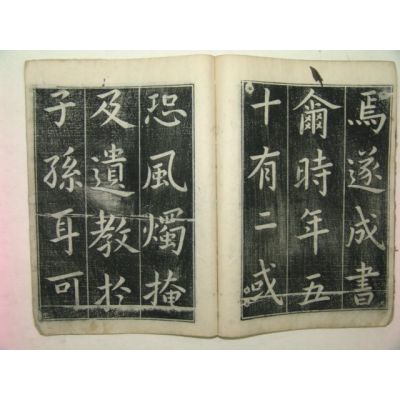 焉遂成書
爾時年五
十有二或
恐風燭掩
及遺教扵
子孫耳可